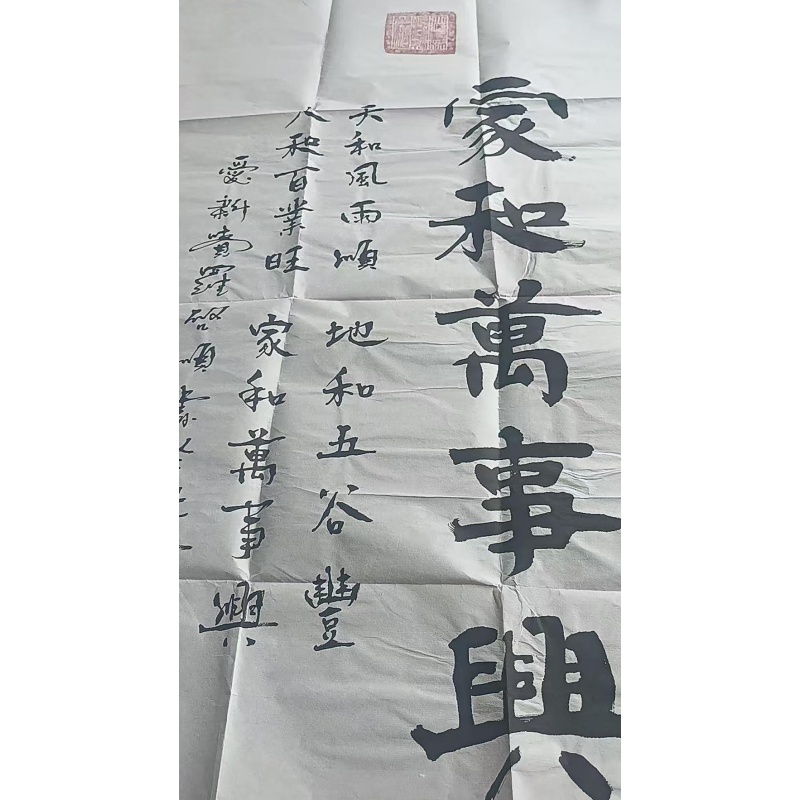 家和萬事興
天和風雨順
地和五谷豐
人和百業旺
家和萬事興
愛新覺羅啓順書